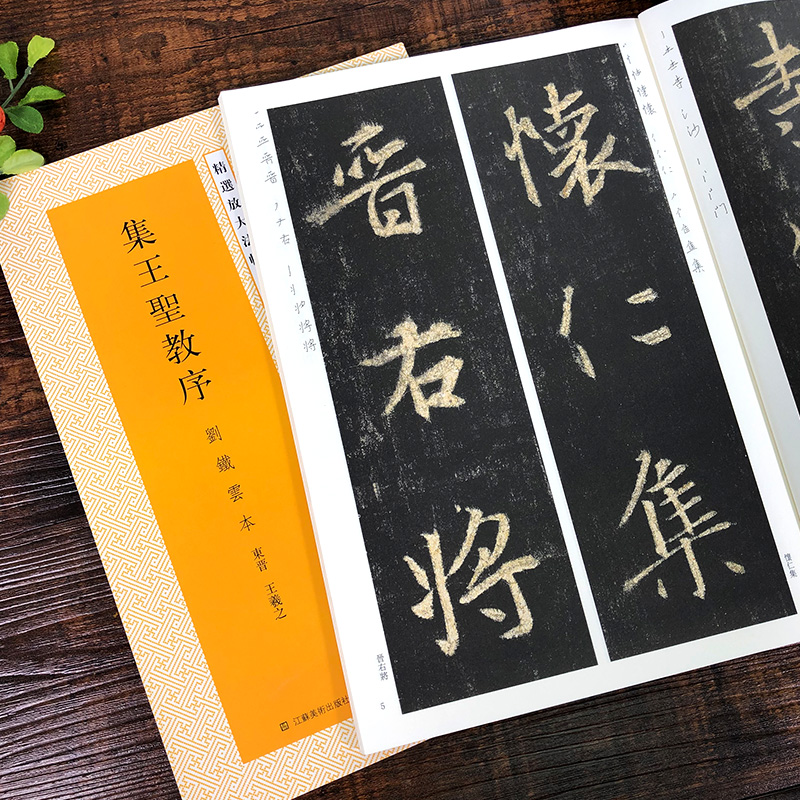 精選放大法
集王聖教序
劉鐵雲本
東晉 王羲之
江蘇美術出版社
懷仁集
晉右將
懷仁集
晉右將
5